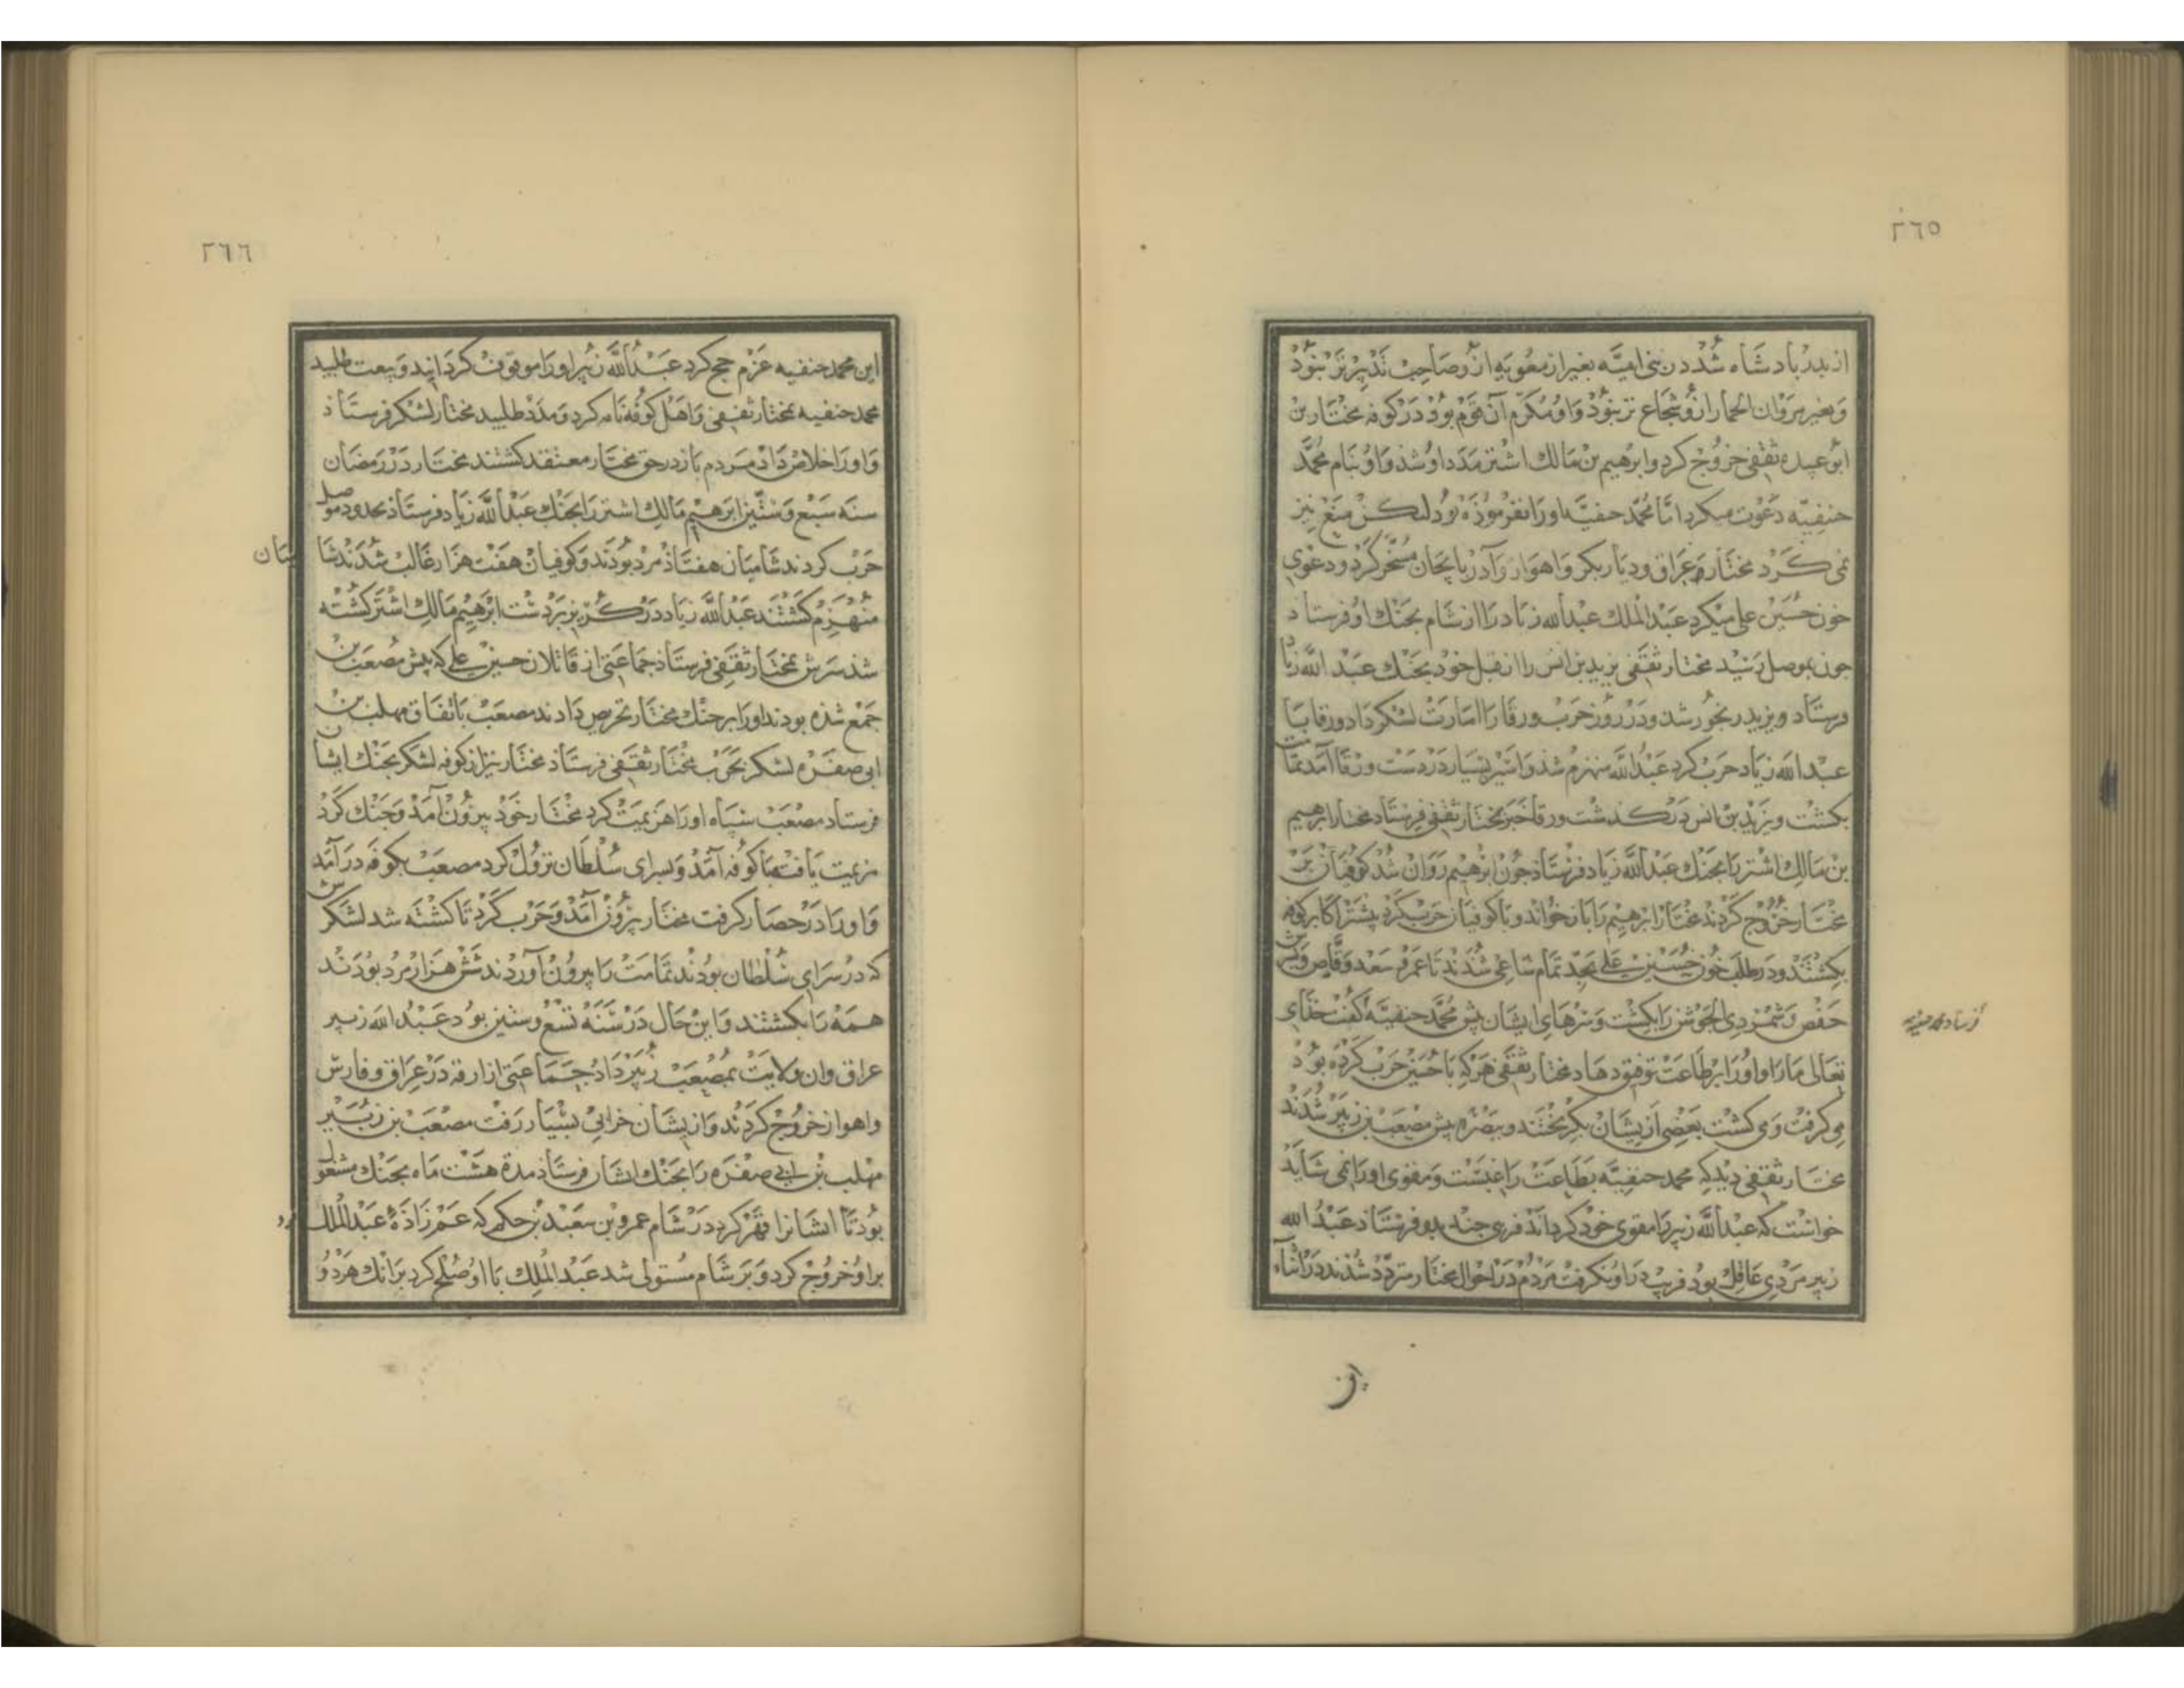 ٢٦٥
از پدر بادشاه شد در بنی امیّه بغیر از معویه ازو صاحب تدبیرتر نبود
وبغیر مروان الحمار ازو شجاع تر نبود واو مکرم آن قوم بود در کوفه مختار بن
ابوعبیده ثقفی خروج کرد وابرهیم بن مالك اشتر مدد او شد واو بنام محمّد
حنفیّه دعوت میکرد امّا محمّد حنفیّه اورا نفرموذه بود لیکن منع نیز
نمی کرد مختار عراق ودیار بکر واهواز وآذربایجان مسخّر کرد ودعوی
خون حسین علی میکرد عبدالملك عبدالله زیاد را از شام بجنك او فرستاد
جون بموصل رسید مختار ثقفی یزید بن انس را از قبل خود بجنك عبدالله زیاد
فرستاد ویزید رنجور شد ودر روز حرب ورقا را امارت لشکر داد ورقا با
عبدالله زیاد حرب کرد عبدالله منهزم شذ واسیر بسیار در دست ورقا آمد تمامت
بکشت ویزید بن انس درکذشت ورقا خبر بمختار ثقفی فرستاد مختار ابرهیم
بن مالك اشتر را بجنك عبدالله زیاد فرستاد جون ابرهیم روان شد کوفیان بر
مختار خروج کردند مختار ابرهیم را باز خواند وباکوفیان حرب کرد بیشتر اکابر کوفه
بکشتند ودر طلب خون حسین علی بجدّ تمام ساعی شدند تا عمرو سعد وقاص وپسرش
حفص وشمر ذی الجوشن را بکشت وسرهای ایشان پیش محمّد حنفیّه کفت خدای
فرستاد محمد حنفیه
تعالی مارا واورا بر طاعت توفیق دهاد مختار ثقفی هرکه با حسین حرب کرده بود
می کرفت ومی کشت بعضی از یشان بکریختند وببصره پیش مصعب بن زبیر شدند
مختار ثقفی دید که محمد حنفیّه بطاعت راغبست ومقوی اورا نمی شاید
خواست که عبدالله زبیر را مقوی خود کرداند فریبی جند بدو فرستاد عبدالله
زبیر مردی عاقل بود فریب در او نکرفت مردم در احوال مختار متردّد شدند در اثناء
این
٢٦٦
این محمد حنفیه عزم حج کرد عبدالله زبیر اورا موقوف کردانید وبیعت طلبید
محمد حنفیه بمختار ثقفی واهل کوفه نامه کرد ومدد طلبید مختار لشکر فرستاذ
واورا خلاص داد مردم باز در حق مختار معتقد کشتند مختار در رمضان
سنه سبع وستّین ابرهیم مالك اشتر را بجنك عبدالله زیاد فرستاذ بحدود موصل
حرب کردند شامیان هفتاذ مرد بودند وکوفیان هفت هزار غالب شدند شامیان
منهزم کشتند عبدالله زیاد در کریز بردست ابرهیم مالك اشتر کشته
شذ سرش بمختار ثقفی فرستاذ جماعتی از قاتلان حسین علی که پیش مصعب بن
جمع شذه بودند اورا بر جنك مختار تحریص دادند مصعب باتفاق مهلب بن
ابی صفره لشکر بحرب مختار ثقفی فرستاذ مختار نیز از کوفه لشکر بجنك ایشان
فرستاد مصعب سپاه اورا هزیمت کرد مختار خود بیرون آمد وجنك کرد
هزیمت یافت باکوفه آمد وبسرای سلطان نزول کرد مصعب بکوفه درآمد
واورا در حصار کرفت مختار بیرون آمد وحرب کرد تا کشته شد لشکرش
که در سرای سلطان بودند تمامت را بیرون آوردند شش هزار مرد بودند
همه را بکشتند واین حال در سنه تسع وستین بود عبدالله زبیر
عراق وان ولایت بمصعب زبیر داد جماعتی ازارقه در عراق وفارس
واهواز خروج کردند واز یشان خرابی بسیار رفت مصعب بن زبیر
مهلب بن ابی صفره را بجنك ایشان فرستاذ مدة هشت ماه بجنك مشغول
بود تا ایشانرا قهر کرد در شام عمرو بن سعید بن حکم که عم زاذهٔ عبدالملك بود
براو خروج کرد وبر شام مستولی شد عبدالملك با او صلح کرد برانك هردو